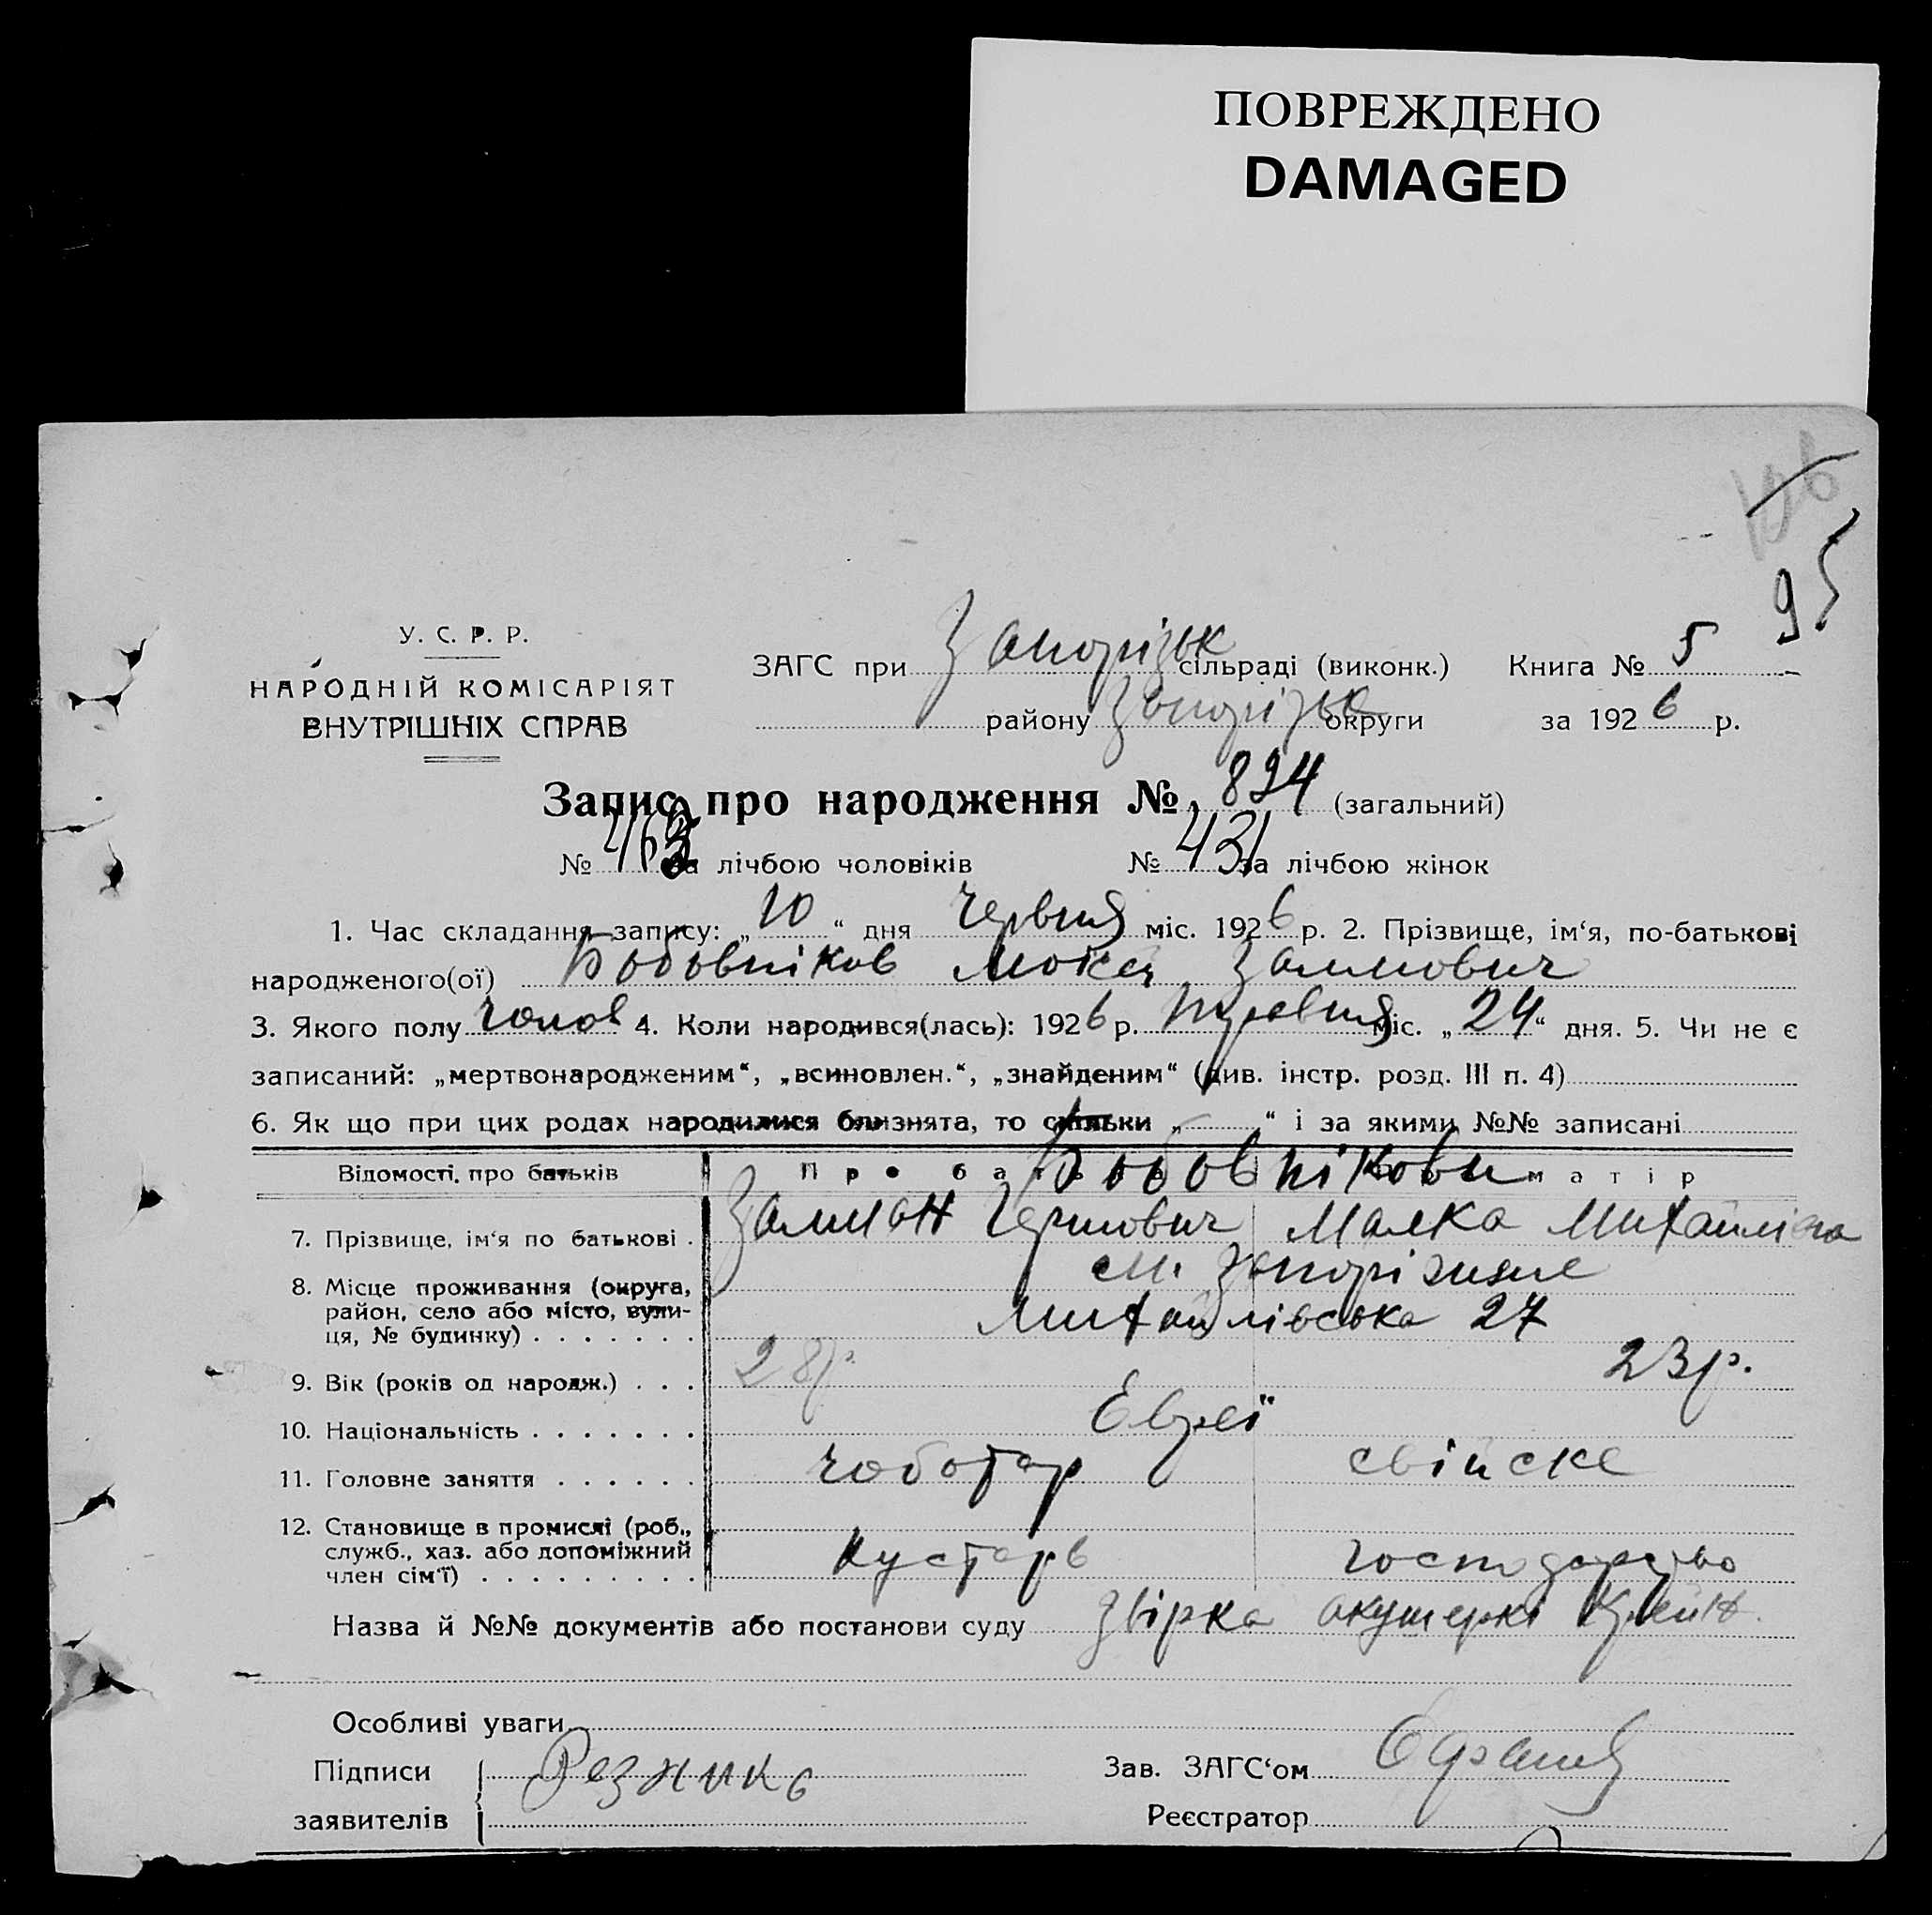 ПОВРЕЖДЕНО
DAMAGED
106
95
У. С. Р. Р.
НАРОДНІЙ КОМІСАРІЯТ
ВНУТРІШНІХ СПРАВ
ЗАГС при Запорізьк сільраді (виконк.) Книга № 5
району Запорізьк округи за 1926 р.
Запис про народження № 894 (загальний)
№ 463 за лічбою чоловіків № 431 за лічбою жінок
1. Час складання запису: „10“ дня Червня міс. 1926 р. 2. Прізвище, ім‘я, по-батькові
народженого(ої) Бобовніков Мойсей Залмович
3. Якого полу чолов 4. Коли народився(лась): 1926 р. Травня міс. „24“ дня. 5. Чи не є
записаний: „мертвонародженим“, „всиновлен.“, „знайденим“ (див. інстр. розд. III п. 4)
6. Як що при цих родах народилися близнята, то скільки „ “ і за якими №№ записані
Відомості про батьків Про батька матір
Бобовнікови
7. Прізвище, ім‘я по батькові . Залман Гершович Малка Михайлівна
8. Місце проживання (округа, район, село або місто, вулиця, № будинку) . . . . . . . м. Запоріжжя
Михайлівська 27
9. Вік (років од народж.) . . . 28р. 23р.
10. Національність . . . . . . . Євреї
11. Головне заняття . . . . . . чоботар свійске
12. Становище в промислі (роб., служб., хаз. або допоміжний член сім‘ї) . . . . . . . . . кустарь господарство
Назва й №№ документів або постанови суду Звірка акушерки
Особливі уваги
Підписи заявителів Резникъ
Зав. ЗАГС‘ом
Реєстратор